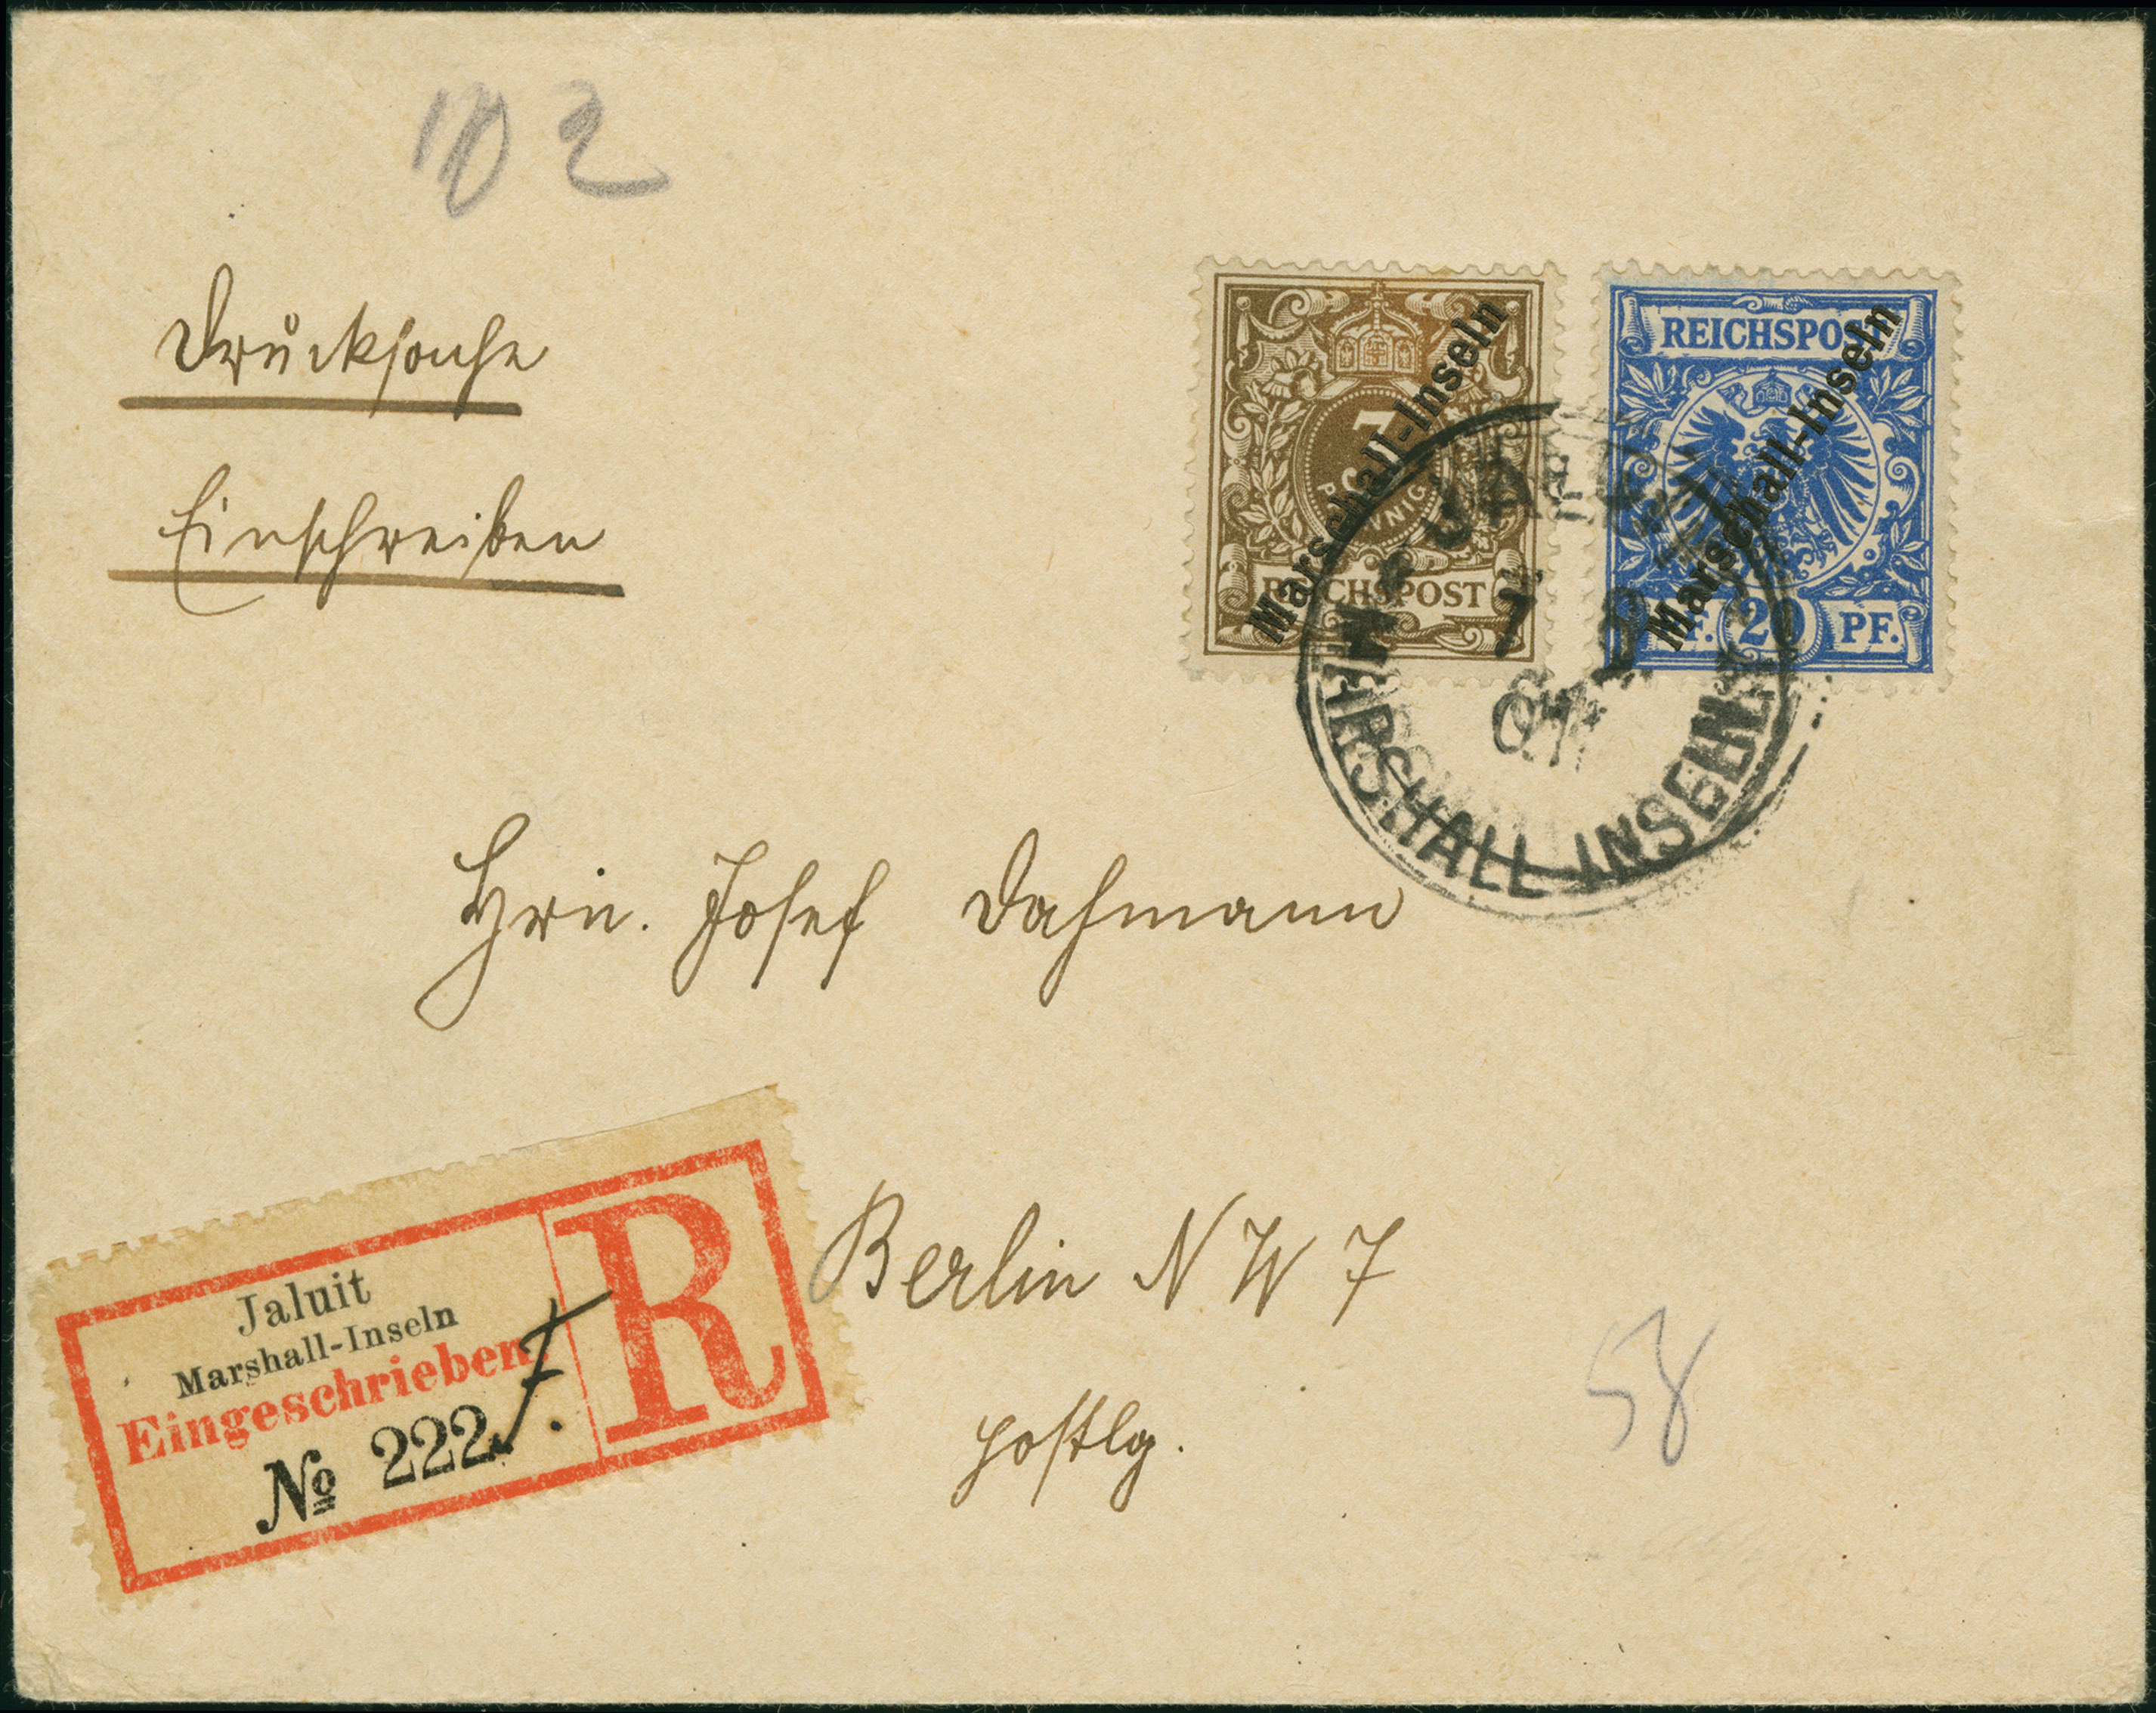 102
Drucksache
Einschreiben
3
PFENNIG
REICHSPOST
Marschall-Inseln
REICHSPOST
PF. 20 PF.
Marschall-Inseln
JALUIT
7
MARSHALL INSELN
Hrn. Josef Dahmann
Jaluit
Marshall-Inseln
Eingeschrieben
№ 222
R
Berlin NW 7
postlg.
58